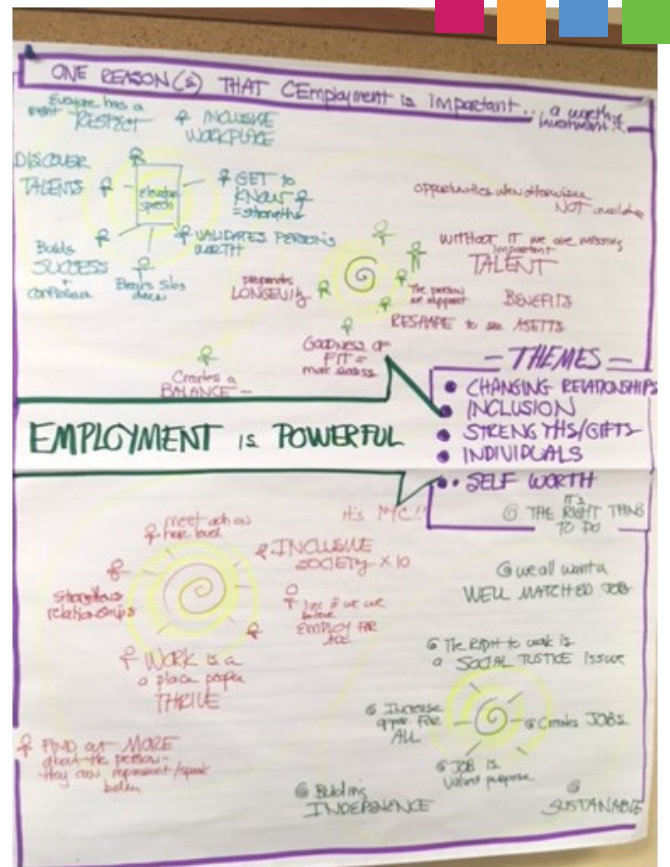 ONE REASON(S) THAT CEmployment is Important... a worthy investment!
Everyone has a
RESPECT
INCLUSIVE
WORKPLACE
DISCOVER
TALENTS
elevator
speech
GET to
KNOW
= strengths
VALIDATES PERSON'S
WORTH
Builds
SUCCESS
+
confidence
Breaks silos
down
opportunities when otherwise
NOT available
WITHOUT IT we are missing
important
TALENT
LONGEVITY
The person
BENEFITS
RESHAPE to see ASETTS
GOODNESS OF
FIT =
more success
Creates a
BALANCE -
- THEMES -
• CHANGING RELATIONSHIPS
• INCLUSION
• STRENGTHS/GIFTS
• INDIVIDUALS
• • SELF WORTH
EMPLOYMENT is POWERFUL
meet each on
their level
INCLUSIVE
SOCIETY x 10
strengthens
relationships
if we
believe
EMPLOY FOR
WORK is a
a place people
THRIVE
FIND out MORE
about the person -
they can represent/speak
it's
THE RIGHT THING
TO DO
we all want a
WELL MATCHED JOB
The RIGHT to work is
a SOCIAL JUSTICE ISSUE
Increase
oppor. FOR
ALL
Creates JOBS
JOB is
valued purpose
Building
INDEPENDENCE
SUSTAINABLE